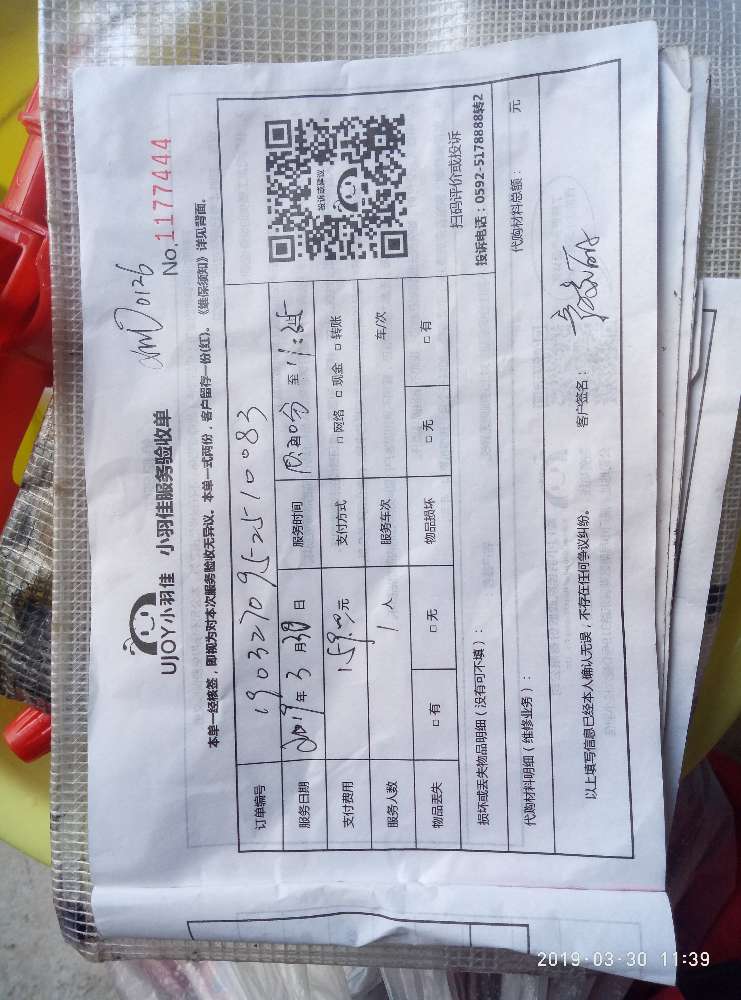 amD0126
UJOY小羽佳 小羽佳服务验收单
No.1177444
本单一经核签，即视为对本次服务验收无异议。本单一式两份，客户留存一份(红)。《维保须知》详见背面。
订单编号 190327095-2510083
服务日期 2019年3月30日 服务时间 至11:25
支付费用 159.00元 支付方式 □网络 □现金 □转账
服务人数 1人 服务车次 车/次
物品丢失 □有 □无 物品损坏 □无 □有
投诉或建议
扫码评价或投诉
投诉电话：0592-5178888转2
损坏或丢失物品明细（没有可不填）：
代购材料明细（维修业务）： 代购材料总额： 元
以上填写信息已经本人确认无误，不存在任何争议纠纷。 客户签名：
2019-03-30 11:39